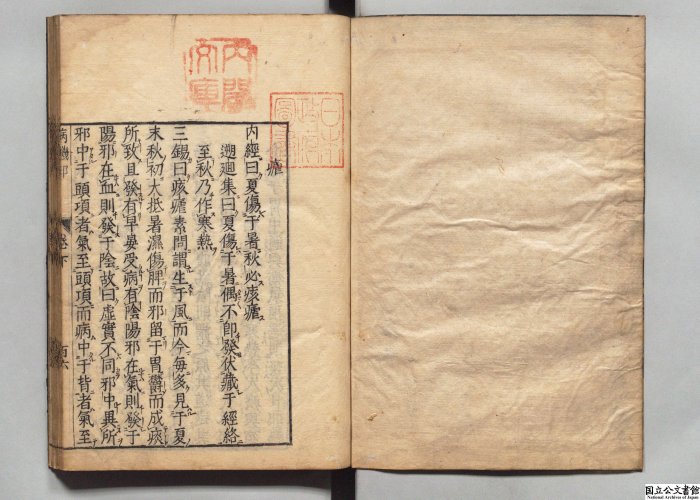 瘧
內經曰夏傷于暑秋必痎瘧
遡迴集曰夏傷于暑偶不即發伏藏于經絡
至秋乃作寒熱
三錫曰痎瘧素問謂生于風而今每多見于夏
末秋初大抵暑濕傷脾而邪留于胃鬱而成痰
所致且發有早晏受病有陰陽邪在氣則發于
陽邪在血則發于陰故曰虛實不同邪中異所
邪中于頭項者氣至頭項而病中于背者氣至
卷下
百六
內閣文庫
日本政府圖書
国立公文書館
National Archives of Japan